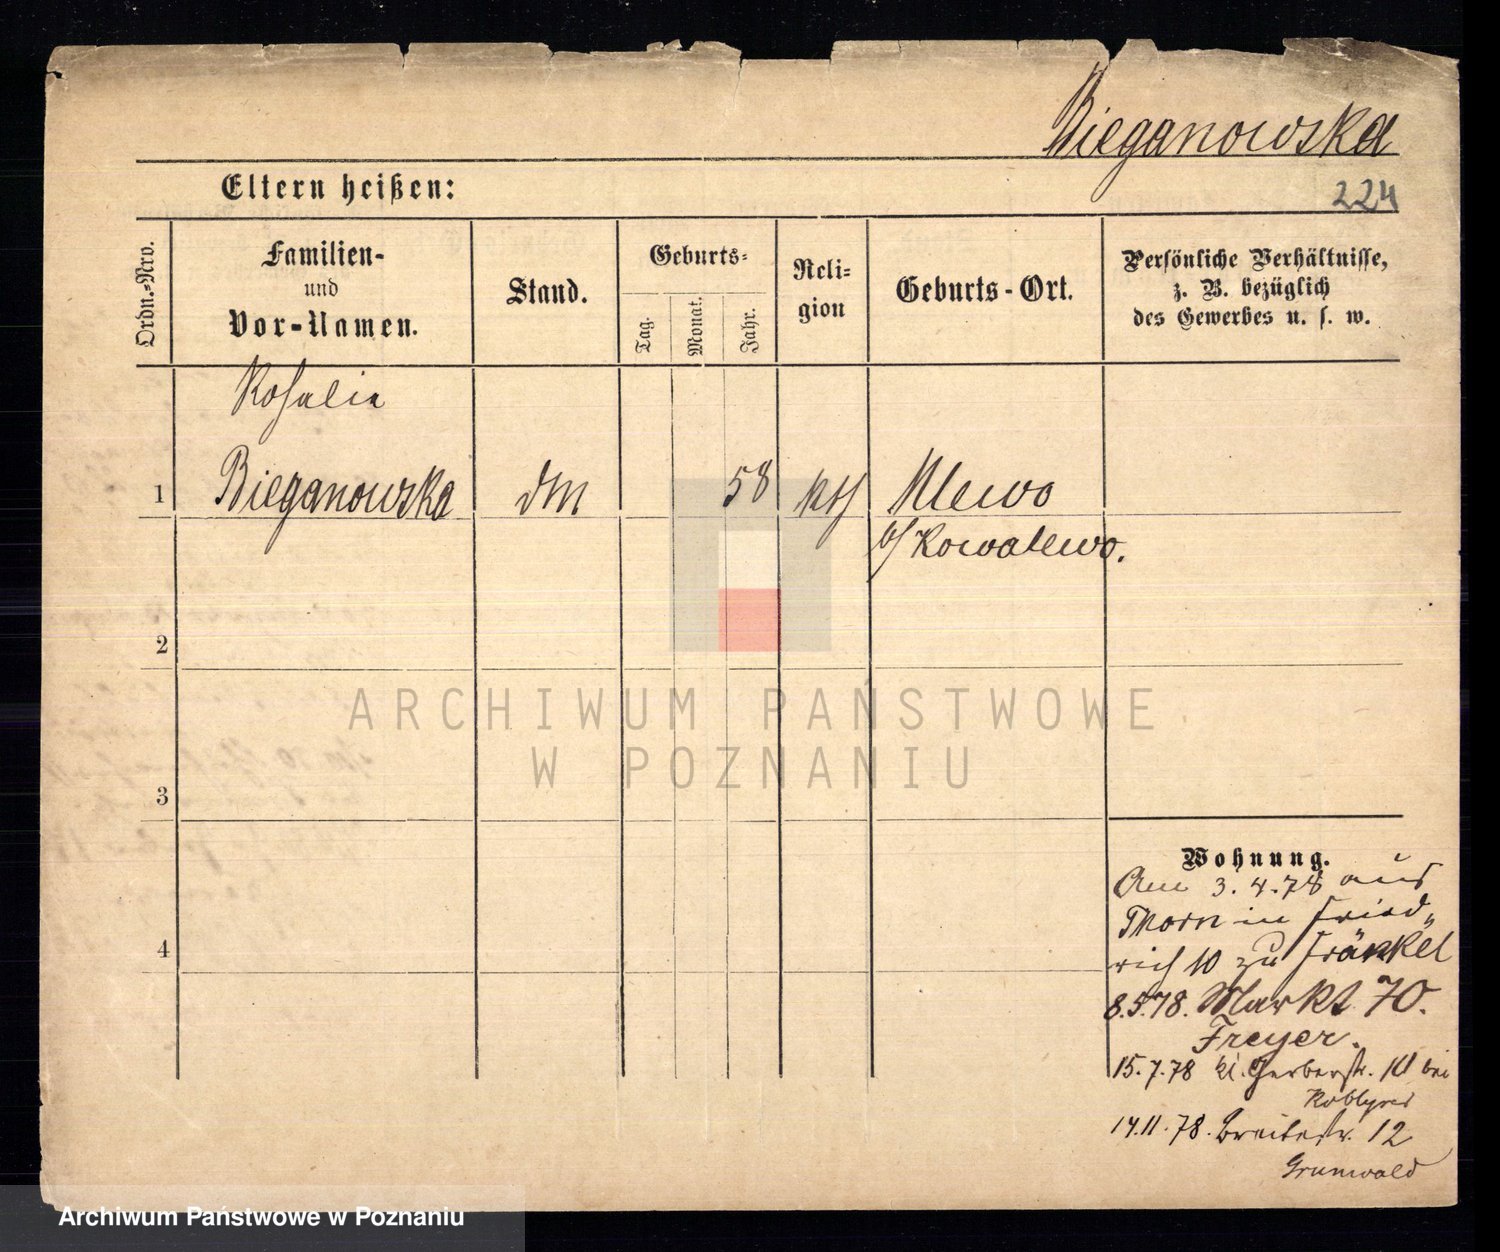 Bieganowska
Eltern heißen:
224
Ordn.-Nro.
Familien-
und
Vor-Namen.
Stand.
Geburts-
Tag.
Monat.
Jahr.
Reli-
gion
Geburts-Ort.
Persönliche Verhältnisse,
z. B. bezüglich
des Gewerbes u. s. w.
Rosalie
1 Bieganowska dM 58 kth Mlewo
b/ Kowalewo.
2
3
4
ARCHIWUM PAŃSTWOWE
W POZNANIU
Wohnung.
Am 3.4.78 aus
Thorn in Fried„
rich 10 zu Fränkel
8.5.78. Markt 70.
Freyer.
15.7.78 kl. Gerberstr. bei
14.11.78. Breitestr. 12
Grunwald
Archiwum Państwowe w Poznaniu